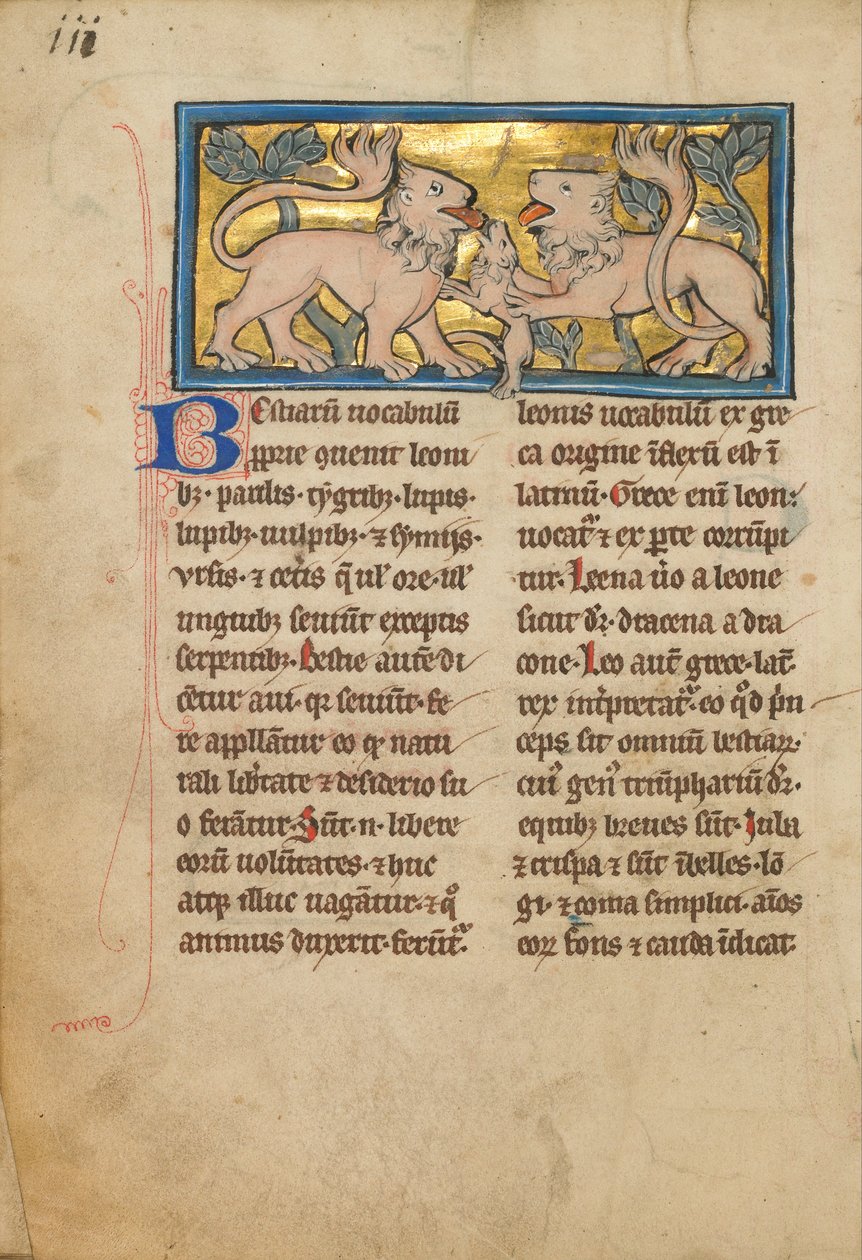 iii
Bestiarū uocabulū
ꝓprie ꝯuenit leoni
bꝫ· pardis· tẏgribꝫ· lupis·
lupibꝫ· uulpibꝫ· ⁊ sẏmijs·
vrsis· ⁊ cet̄is q̄ ul' ore· ul'
unguibꝫ seuiūt exceptis
serpentibꝫ· Bestie autē di
cūtur a ui· qꝛ seuiūt· fe
re appllātur eo ꝙ natu
rali lib̄tate ⁊ desiderio su
o ferātur· Sūt· n· libere
eorū uolūtates· ⁊ huc
atqꝫ illuc uagātur· ⁊ qͦ
animus duxerit· ferūtᷣ·
leonis uocabulū ex gre
ca origine īflexū est ī
latinū· Grece enī leon·
uocatᷣ ⁊ ex ꝑte corrūpi
tur· Leena ůo a leone
sicut dr̄· dracena a dra
cone· Leo aut̄ grece· lat̄·
rex int̄pretatᷣ· eo qͦd p̄n
ceps sit omniū bestiaꝝ·
cuiꝰ genꝰ triūphariū dr̄·
e quibꝫ breues sūt· Iuba
⁊ crispa ⁊ sūt ībelles· lō
gi· ⁊ coma simplici· aīos
eoꝝ fons ⁊ cauda īdicat·